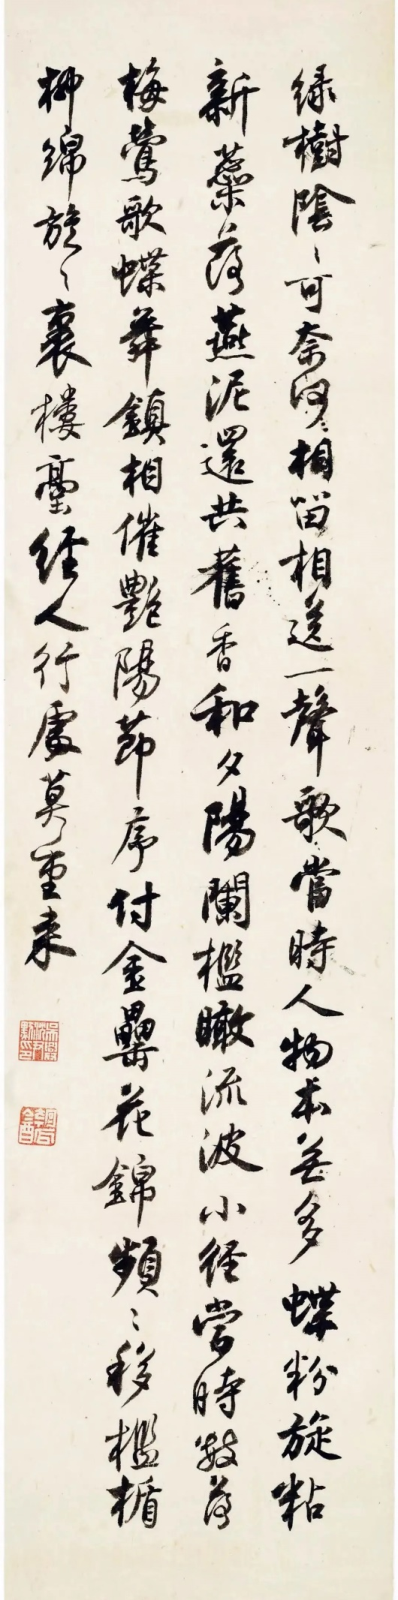 绿樹陰〻可奈何相留相送一聲歌當時人物本無多蝶粉旋粘
新蘂落燕泥還共舊香和夕陽闌檻瞰流波小径嘗時數落
梅鶯歌蝶舞鎮相催艷陽節序付金罍花錦頻〻移檻楯
柳綿旋〻裹樓臺經人行處莫重来